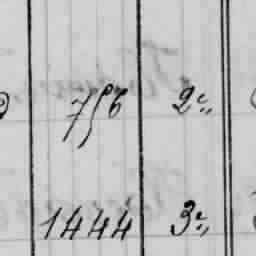 756 2e,,
1444 3e,,